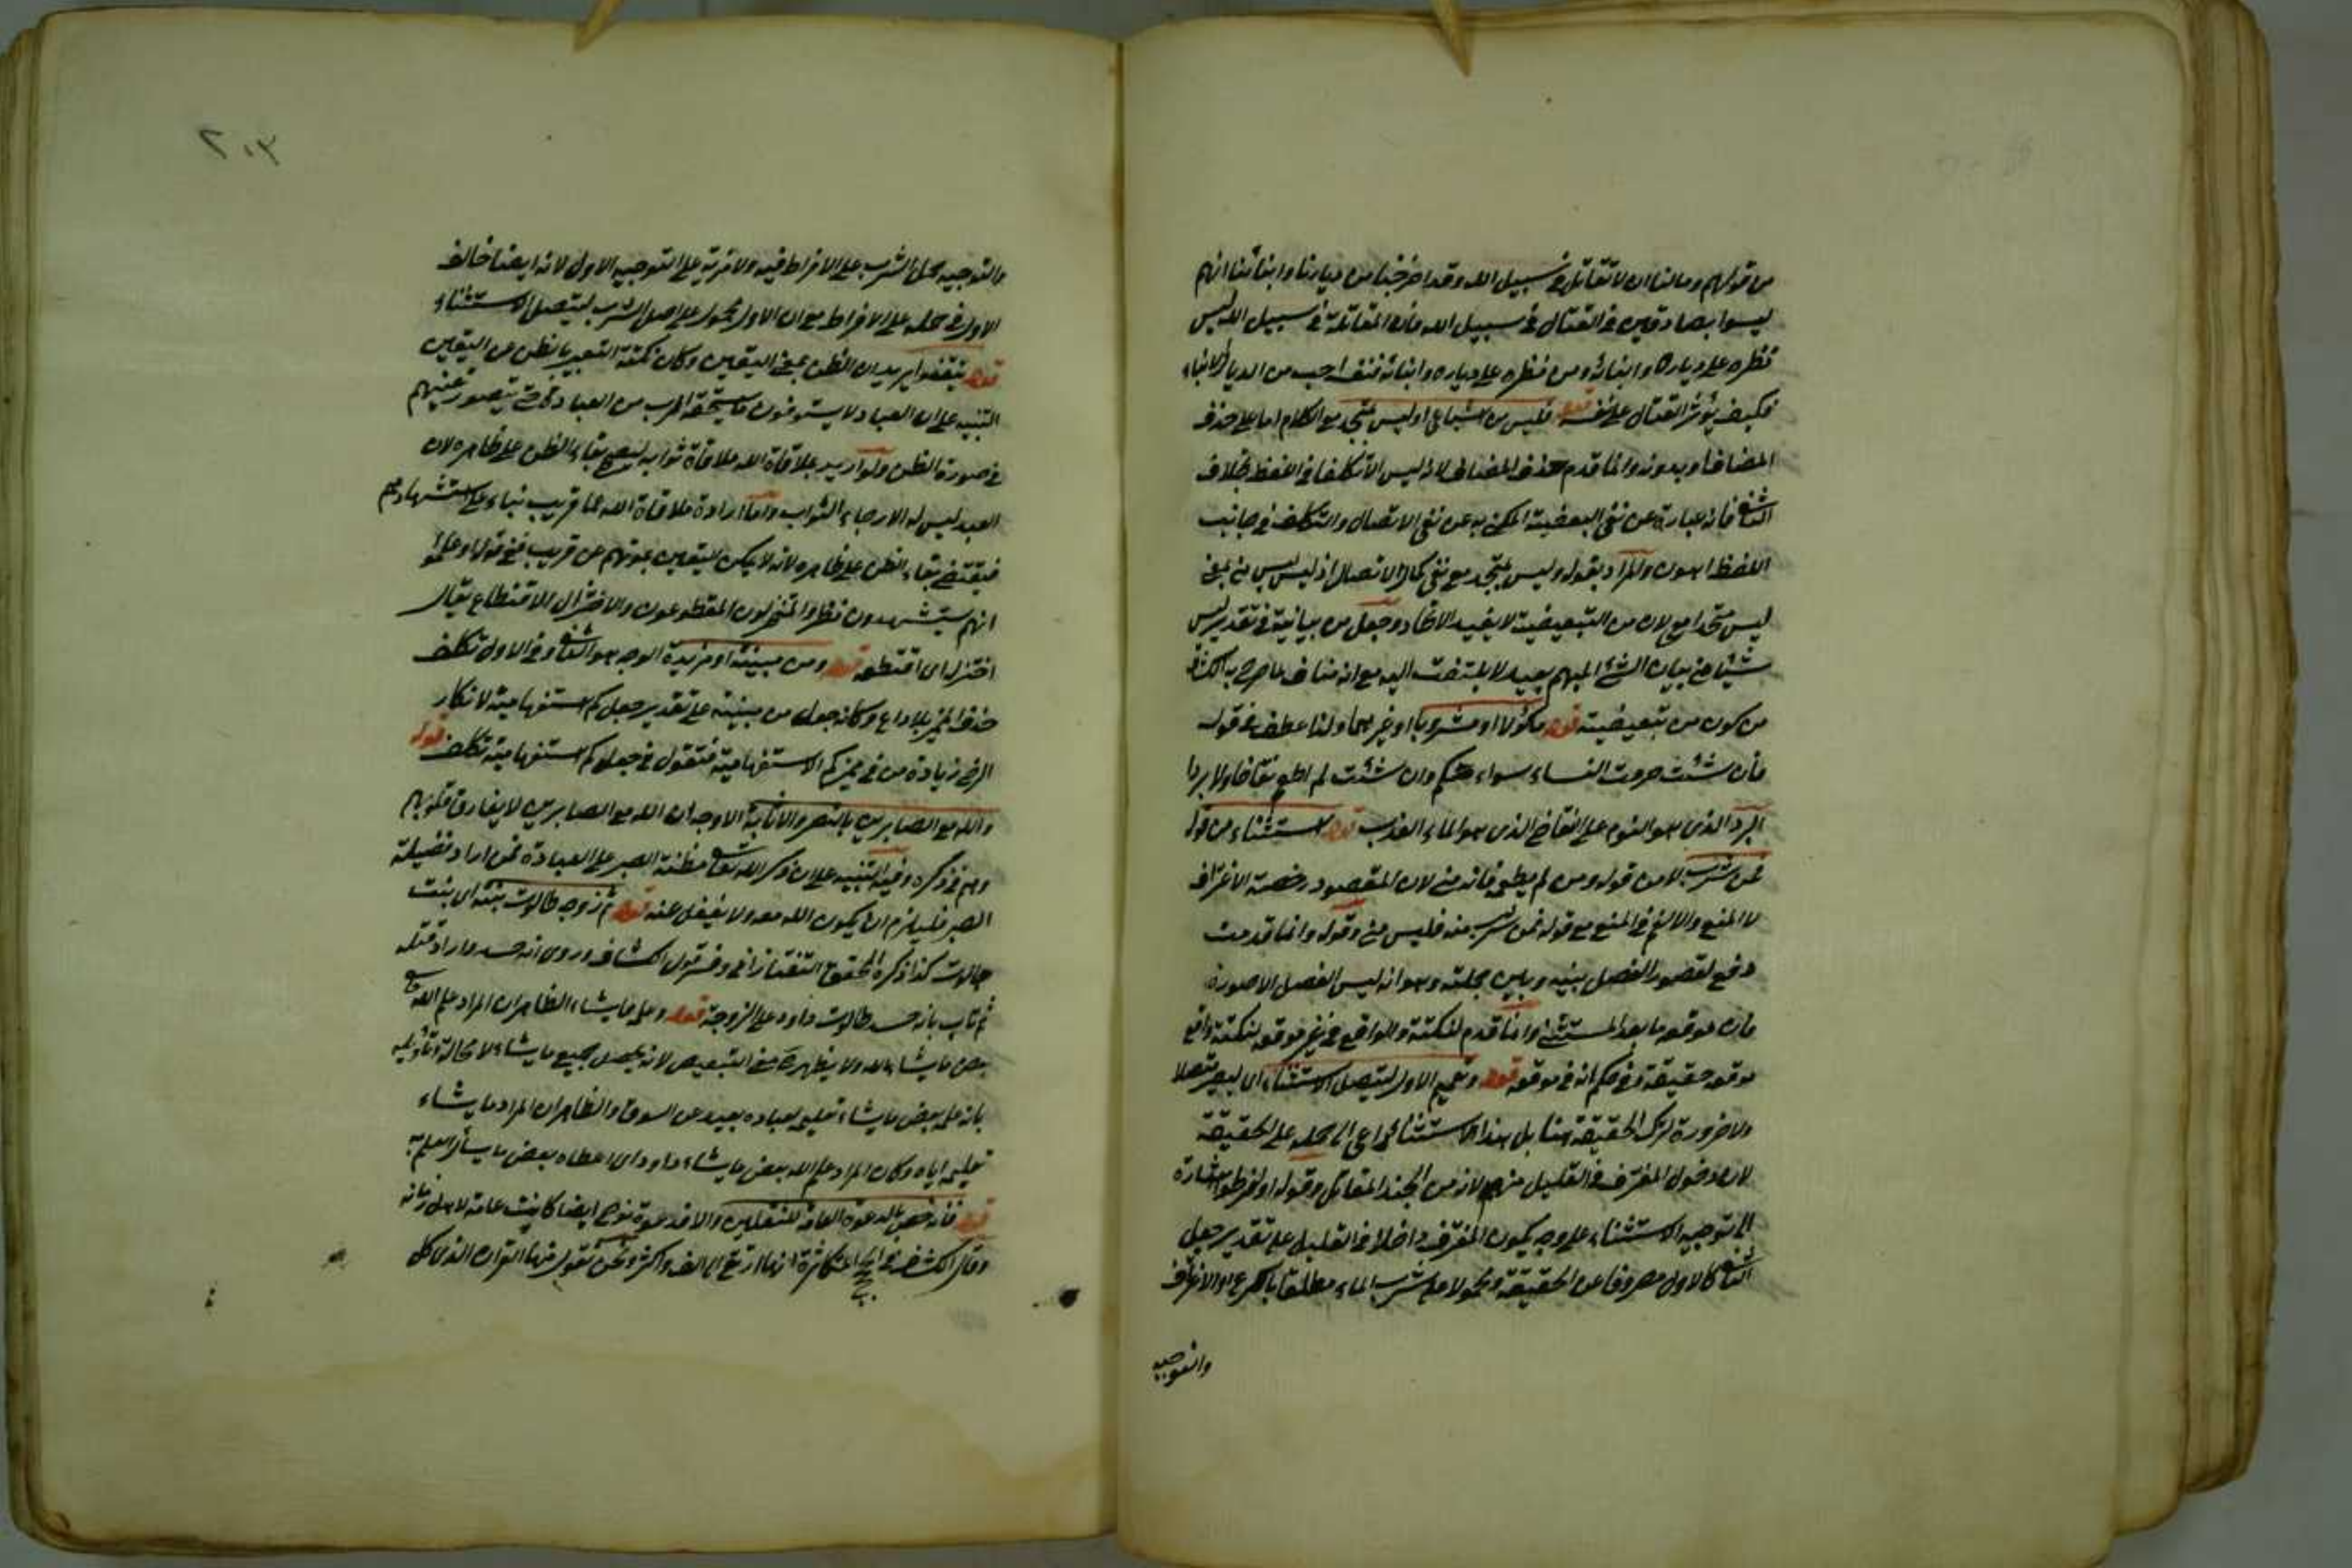 من قولهم ومالنا ان لا نقاتل في سبيل الله وقد اخرجنا من ديارنا وابنائنا انهم
ليسوا بصادقين في القتال في سبيل الله فان المقاتلة في سبيل الله ليس
نظره على دياره وابنائه ومن نظره على دياره وابنائه فنفسه احب من الديار والابناء
فكيف يؤثر القتال على نفسه قوله فليس من اشياعي او ليس بمتحد مع الكلام اما على حذف
المضاف او بدونه وانما قدم حذف المضاف لانه ليس الا تكلفا في اللفظ بخلاف
الثاني فانه عبارة عن نفي البعضية المكنى به عن نفي الاتصال والتكلف في جانب
اللفظ اهون والمراد بقوله وليس بمتحد مع نفي كمال الاتصال اذ ليس ليس مني بمعنى
ليس متحدا مع لان من التبعيضية لا يفيد الاتحاد وجعل من بيانية في تقدير ليس
شيئا من بيان الشئ المبهم بعيد لا يلتفت اليه مع انه مناف لما صرح به الكشاف
من كون من تبعيضية قوله مأكولا او مشروبا او غيرهما ولذا عطف في قوله
فان شئت حرمت النساء سواءكم وان شئت لم اطعم نقاخا ولا بردا
البرد الذي هو النوم على النقاخ الذي هو الماء العذب قوله استثناء من قوله
فمن شرب لا من قوله ومن لم يطعمه فانه مني لان المقصود رخصة الاغتراف
لا المنع والا لغى المنع مع قوله فمن شرب منه فليس مني وقوله وانما قدمت
دفع لقصور الفصل بينه وبين جملته وهو انه ليس الفصل الا صورة
فان موقعه ما بعد المستثنى وانما قدم لنكتة والواقع في غير موقعه لنكتة واقع
موقعه حقيقة وفي حكم انه في موقعه قوله وتعميم الاول ليتصل الاستثناء اي ليصير متصلا
ولا ضرورة لترك الحقيقة هنا بل هذا الاستثناء داع الى حمله على الحقيقة
لان دخول المغترف في القليل منهم لانه من الجند المقاتل وقوله او افرطوا اشارة
الى توجيه الاستثناء على وجه يكون المغترف داخلا في القليل على تقدير جعل
الثاني كالاول مصروفا عن الحقيقة ومحمولا على شرب الماء مطلقا بالكرع او الاغتراف
والتوجيه
والتوجيه بحمل الشرب على الافراط فيه ولا مزية على التوجيه الاول لانه ايضا خالف
الاول في حمله على الافراط مع ان الاول محمول على اصل الشرب ليتصل الاستثناء
قوله يتيقنوا يريد ان الظن بمعنى اليقين وكان نكتة التعبير بالظن عن اليقين
التنبيه على ان العباد لا يستوفون ما يستحقه الرب من العباد حتى يتصور يقينهم
في صورة الظن ولو اريد بملاقاة الله ملاقاة ثوابه لصح بقاء الظن على ظاهره لان
العبد ليس له الا رجاء الثواب واما ارادة ملاقاة الله عما قريب بناء على استشهادهم
فيقتضي بقاء الظن على ظاهره لانه لا يمكن اليقين بموتهم عن قريب ففي قوله او علموا
انهم يستشهدون نظر والمنخزلون المقطوعون والاختزال الاقتطاع يقال
اختزله اي اقتطعه قوله ومن مبينة او مزيدة الوجه هو الثاني وفي الاول تكلف
حذف المميز بلا داع وكانه جعل من مبينة على تقدير جعل كم استفهامية لانكار
الرضي زيادة من في مميز كم الاستفهامية فنقول في جعل كم استفهامية تكلف قوله
والله مع الصابرين بالنصر والاثابة الاوجه ان الله مع الصابرين لا يفارق قلوبهم
وهم في ذكره وفيه التنبيه على ان ذكر الله تعالى مظنة الصبر على العبادة فمن اراد فضيلة
الصبر فليلزم ان يكون الله معه ولا يغفل عنه قوله ثم زوجه طالوت بنته اي بنت
جالوت كذا ذكره المحقق التفتازاني وفسر قول الكشاف وروي انه حسده واراد قتله
ثم تاب بانه حسد طالوت داود على الزوجة قوله وعلمه مما يشاء الظاهر ان المراد علم الله
بعض ما يشاء الله ولا يظهر معنى التبعيض لانه يحصل جميع ما يشاء لا محالة وتأويله
بانه علم بعض ما يشاء تعليمه لعباده بعيد عن السوق والظاهر ان المراد ما يشاء
تعليمه اياه وكان المراد علم الله بعض ما يشاء داود اي اعطاه بعض ما يسأل العلم به
قوله فانه خص بالدعوة العامة للثقلين والا فدعوة نوح ايضا كانت عامة لاهل زمانه
وقال الكشاف المتكاثرة انها ارتقى الى الف واكثر ونحن نقول منها القرآن الذي كل
٢٠٣